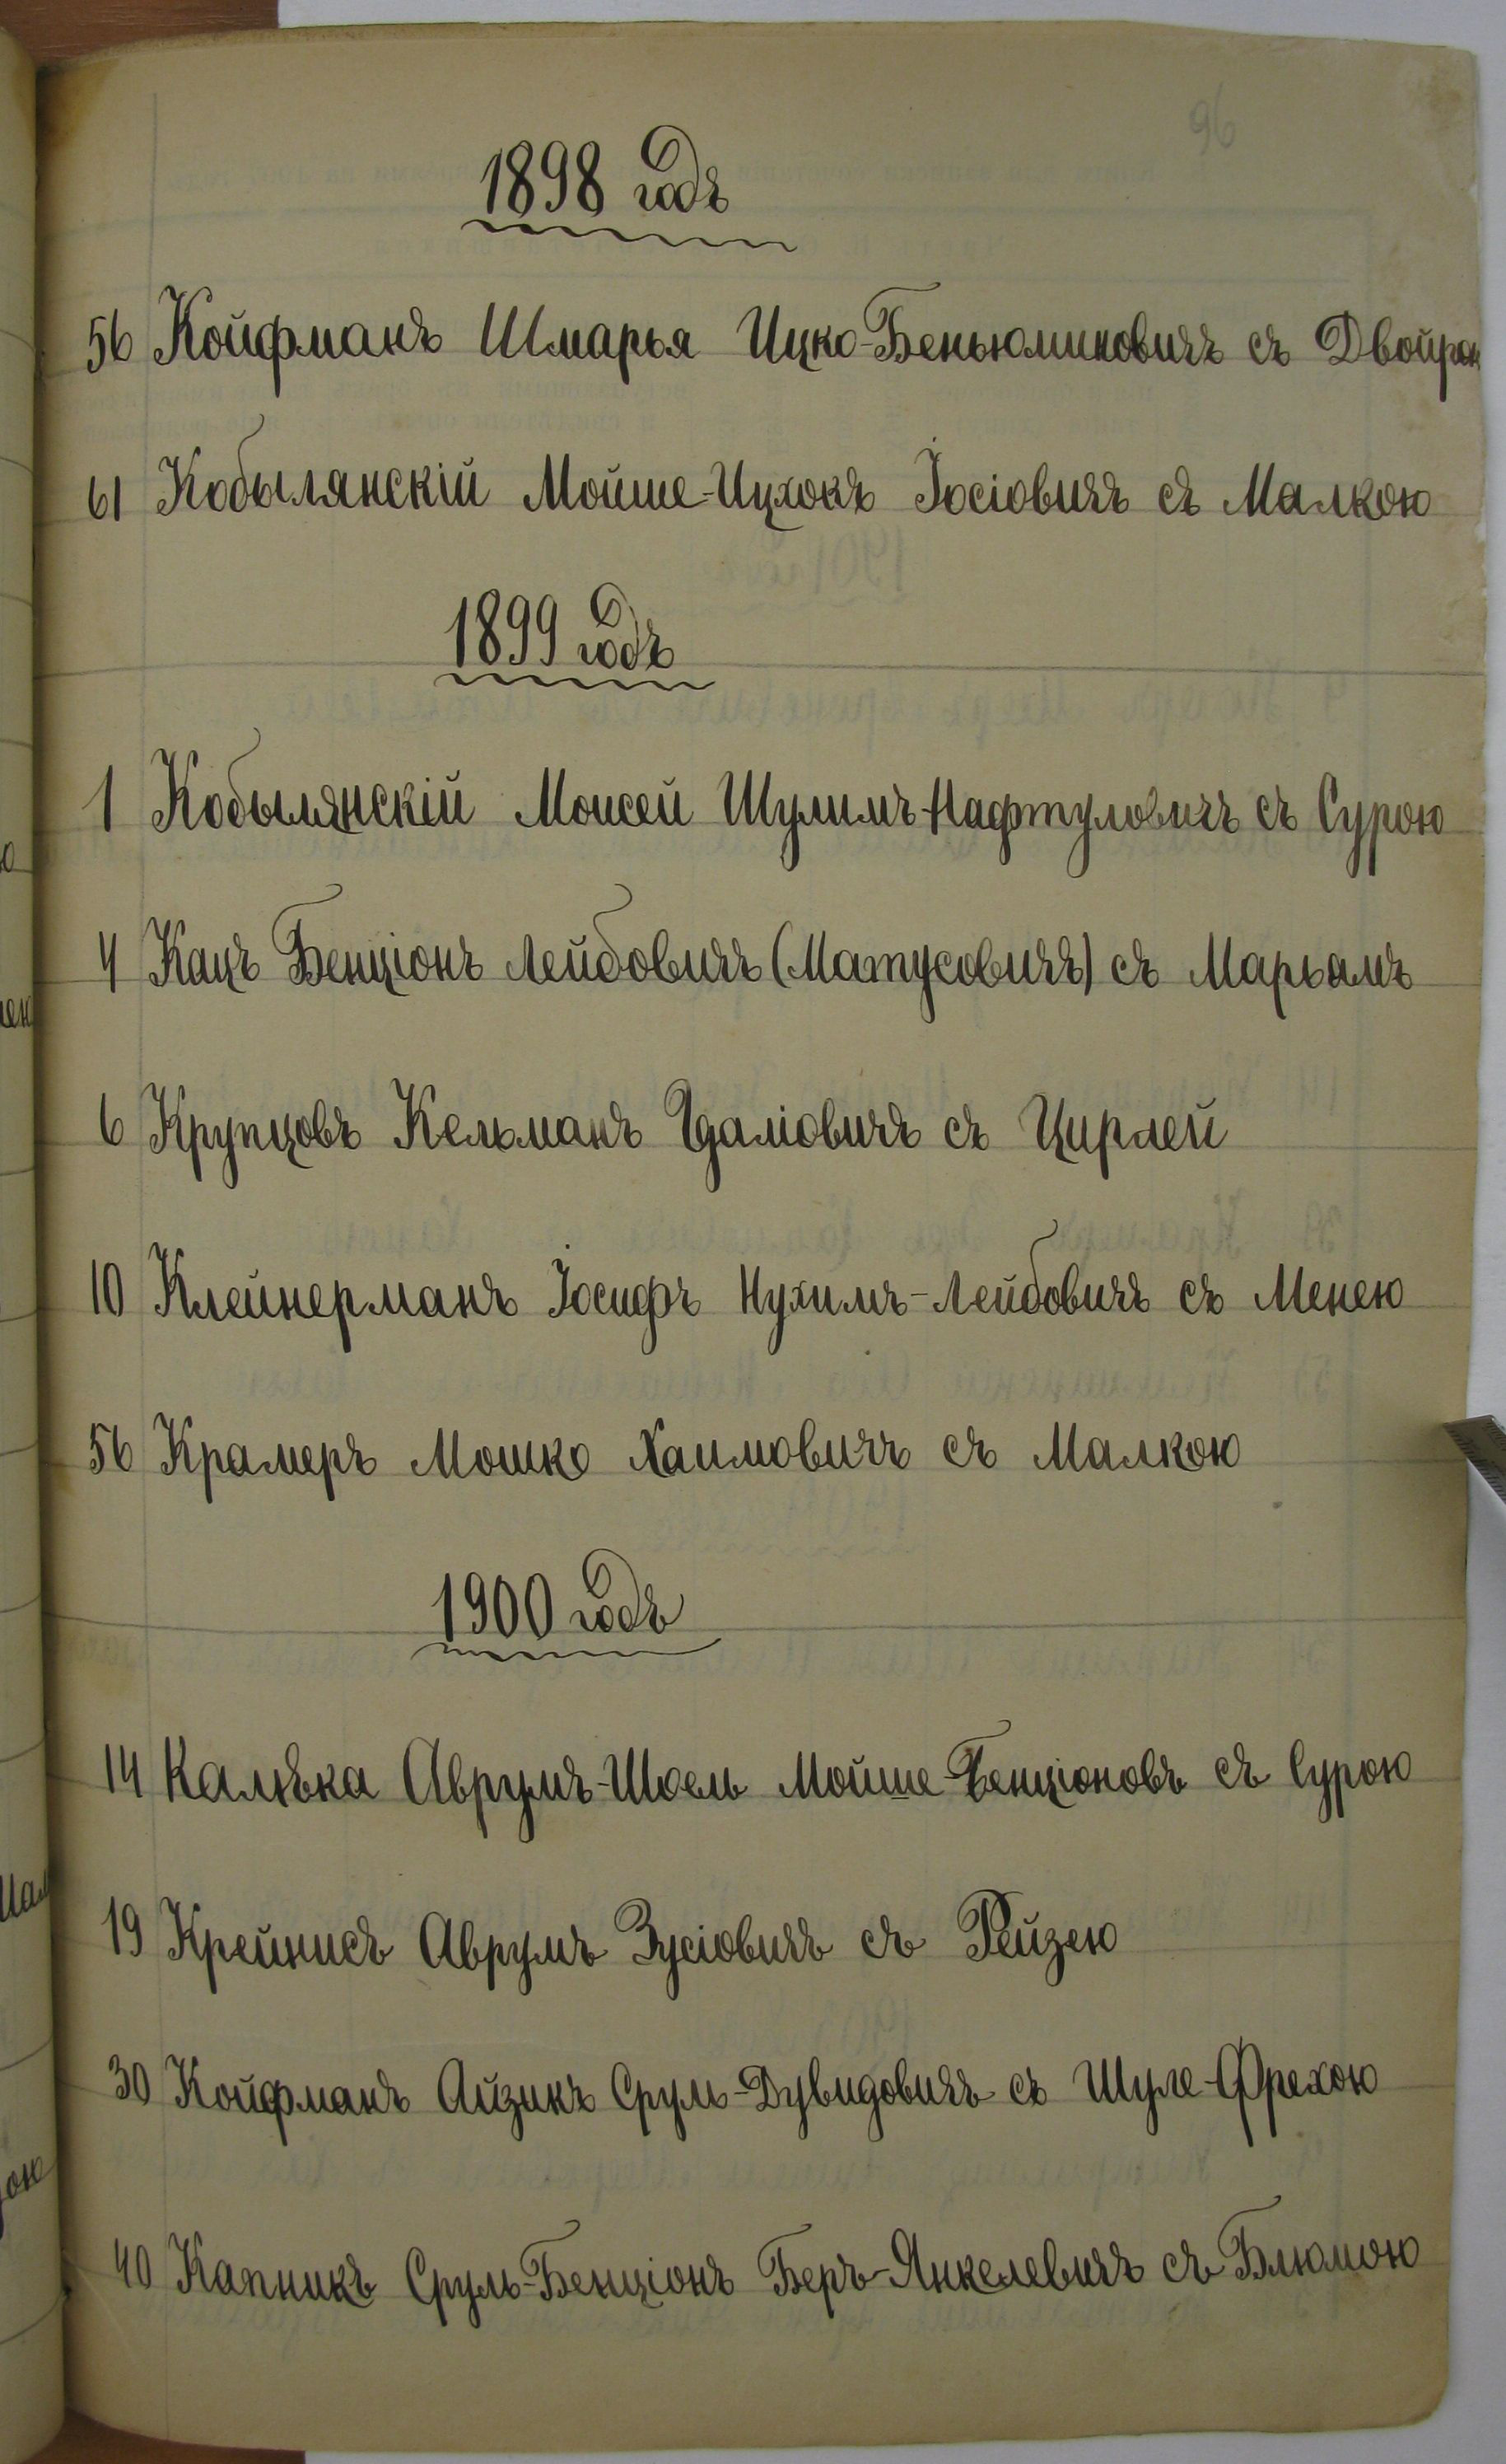 96
1898 годъ
56 Койфманъ Шмарья Ицко-Беньюминовичъ съ Двойрою
61 Кобылянскій Мойше-Ицхокъ Іосіовичъ съ Малкою
1899 годъ
1 Кобылянскій Моисей Шулимъ-Нафтуловичъ съ Сурою
4 Кацъ Бенціонъ Лейбовичъ (Матусовичъ) съ Марьямъ
6 Крупцовъ Кельманъ Гдаліовичъ съ Цирлей
10 Клейнерманъ Іосифъ Нухимъ-Лейбовичъ съ Менею
56 Крамеръ Мошко Хаимовичъ съ Малкою
1900 годъ
14 Калѣка Аврумъ-Шоель Мойше-Бенціоновъ съ Сурою
19 Крейнисъ Аврумъ Зусіовичъ съ Рейзею
30 Койфманъ Айзикъ Сруль-Дувидовичъ съ Шуле-Фрехою
40 Капникъ Сруль-Бенціонъ Беръ-Янкелевичъ съ Блюмою